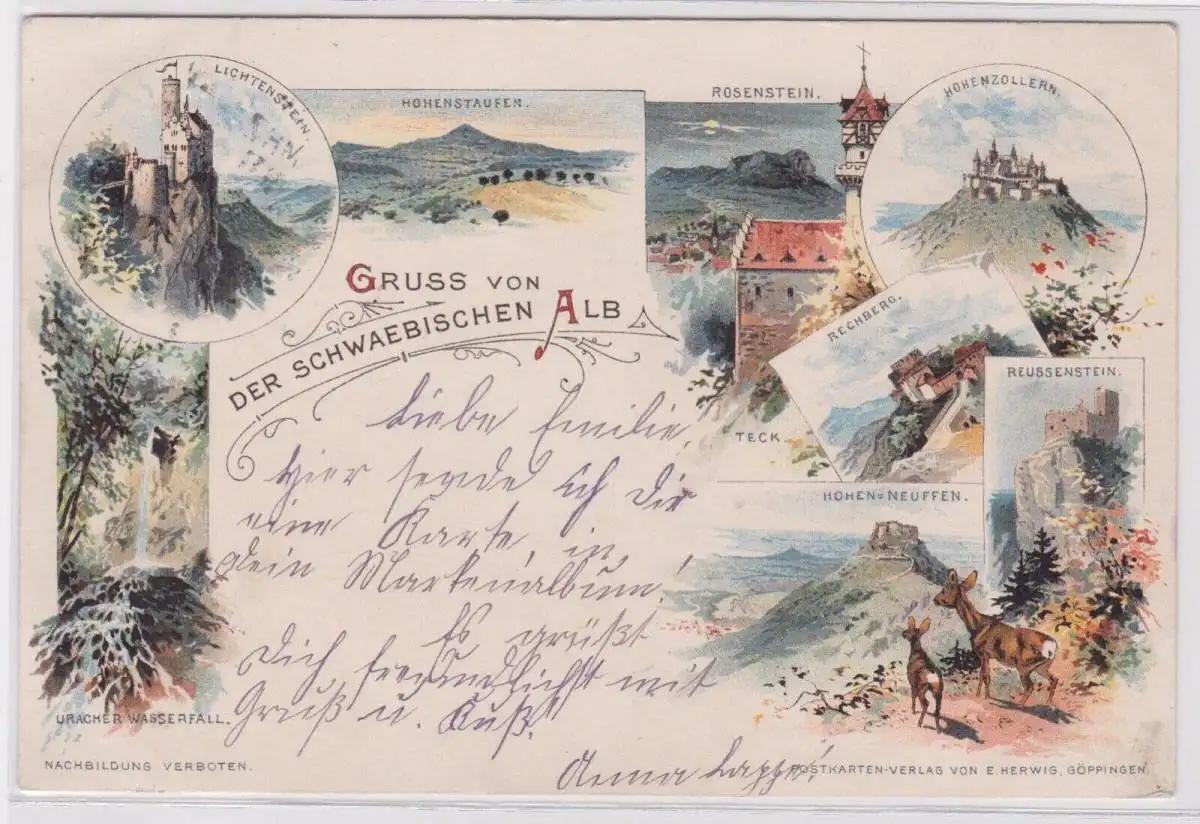 LICHTENSTEIN.
HOHENSTAUFEN.
ROSENSTEIN.
HOHENZOLLERN.
GRUSS VON
DER SCHWAEBISCHEN ALB
RECHBERG.
REUSSENSTEIN.
TECK
HOHEN=NEUFFEN.
Liebe Emilie,
Hier sende ich Dir
eine Karte, in
Dein Markenalbum!
Es grüßt
Dich freundlichst mit
Gruß u. Kuß!
Anna
URACHER WASSERFALL.
NACHBILDUNG VERBOTEN.
POSTKARTEN-VERLAG VON E. HERWIG, GÖPPINGEN.